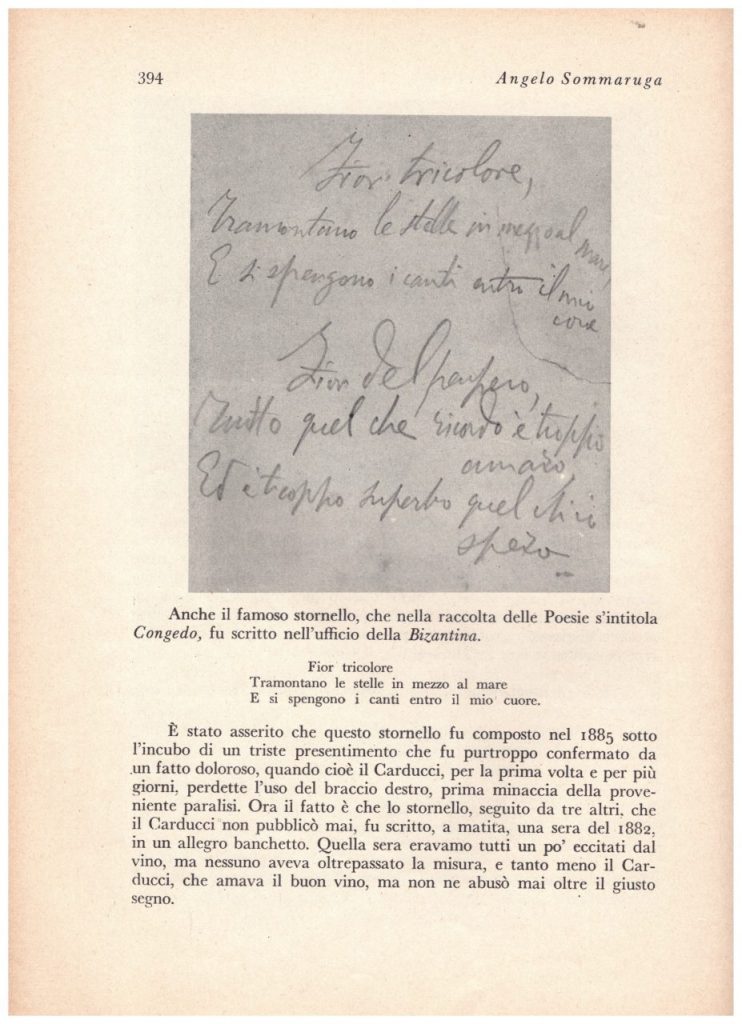 394
Angelo Sommaruga
Fior tricolore,
Tramontano le stelle in mezzo al mare,
E si spengono i canti entro il mio
core
Fior del
Tutto quel che ricordo è troppo
amaro,
Ed è troppo superbo quel ch'io
spero
Anche il famoso stornello, che nella raccolta delle Poesie s'intitola
Congedo, fu scritto nell'ufficio della Bizantina.
Fior tricolore
Tramontano le stelle in mezzo al mare
E si spengono i canti entro il mio cuore.
È stato asserito che questo stornello fu composto nel 1885 sotto
l'incubo di un triste presentimento che fu purtroppo confermato da
un fatto doloroso, quando cioè il Carducci, per la prima volta e per più
giorni, perdette l'uso del braccio destro, prima minaccia della prove-
niente paralisi. Ora il fatto è che lo stornello, seguito da tre altri, che
il Carducci non pubblicò mai, fu scritto, a matita, una sera del 1882,
in un allegro banchetto. Quella sera eravamo tutti un po' eccitati dal
vino, ma nessuno aveva oltrepassato la misura, e tanto meno il Car-
ducci, che amava il buon vino, ma non ne abusò mai oltre il giusto
segno.